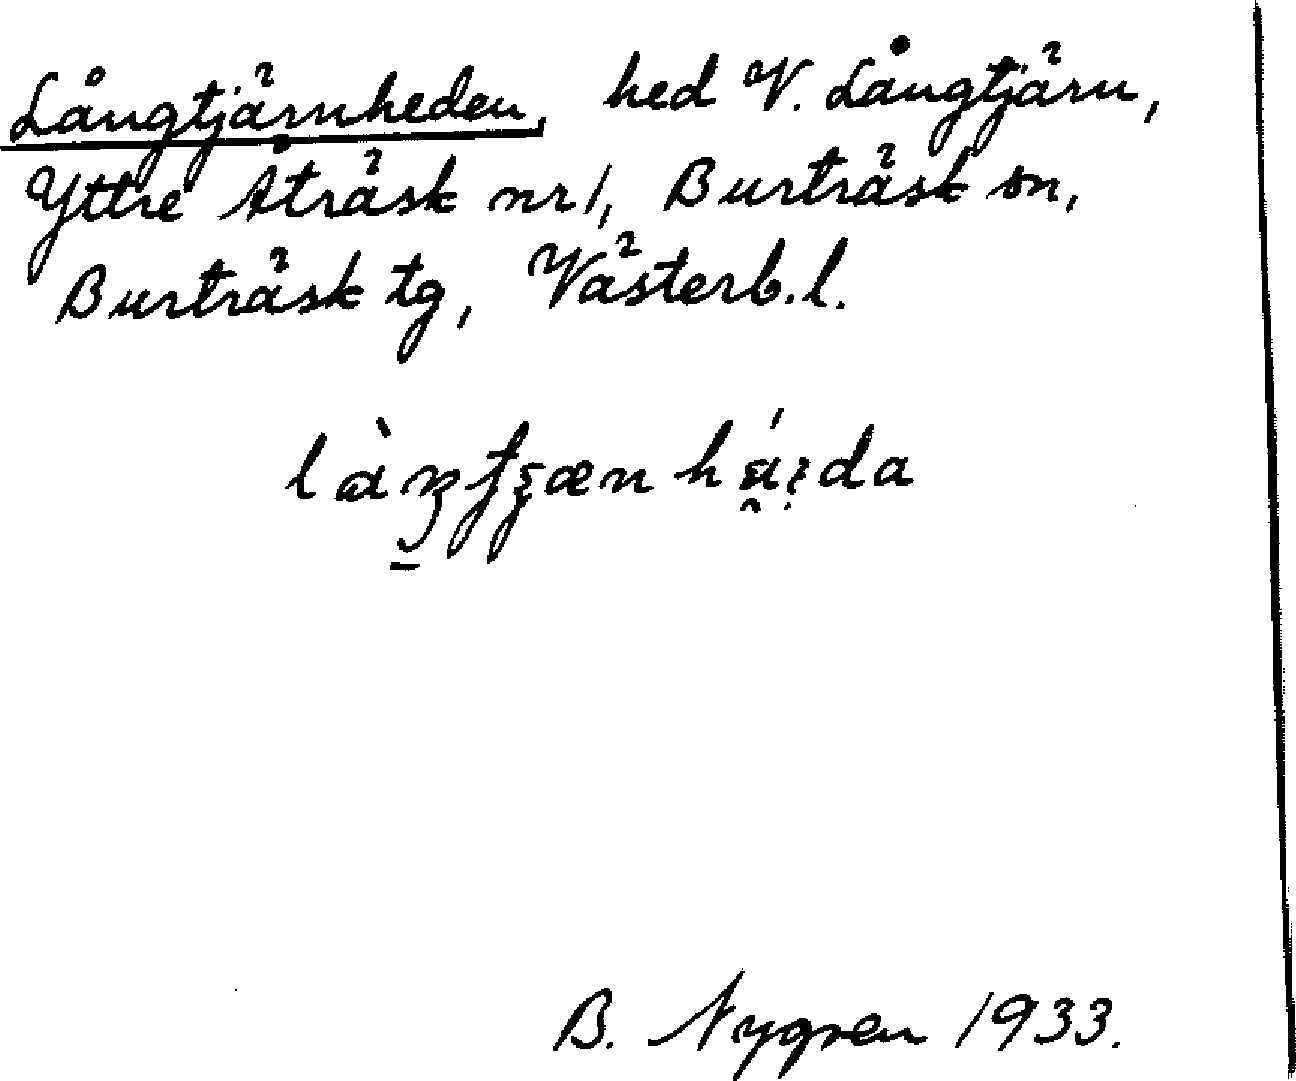 Långtjärnheden, hed V. Långtjärn,
Yttre Åträsk nr 1, Burträsk sn,
Burträsk tg, Västerb. l.
B. Nygren 1933.